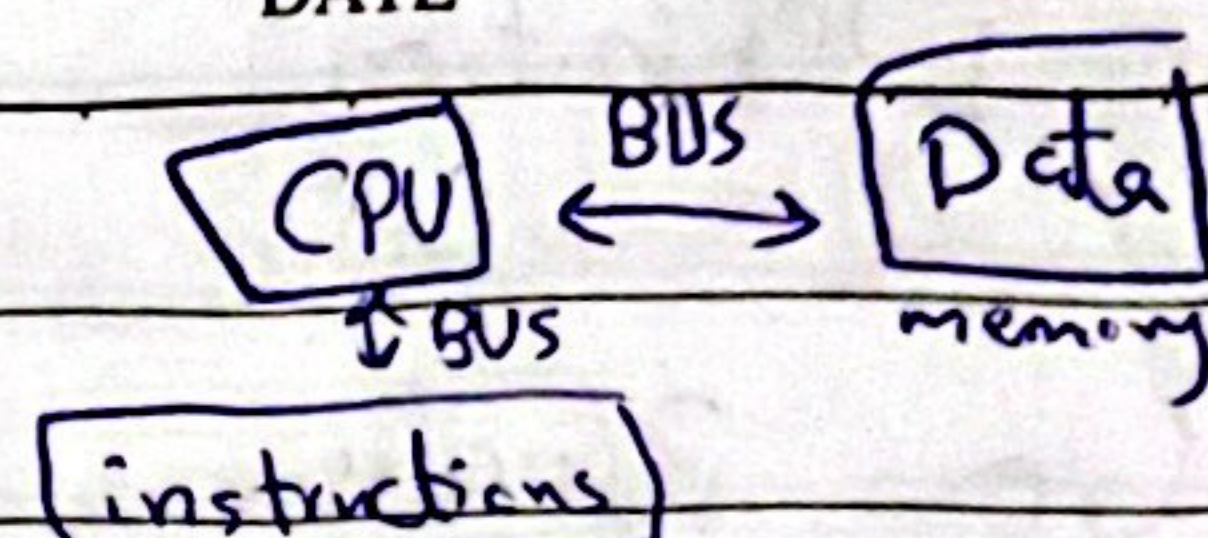 DATE
BUS
CPU
Data
BUS
memory
instructions